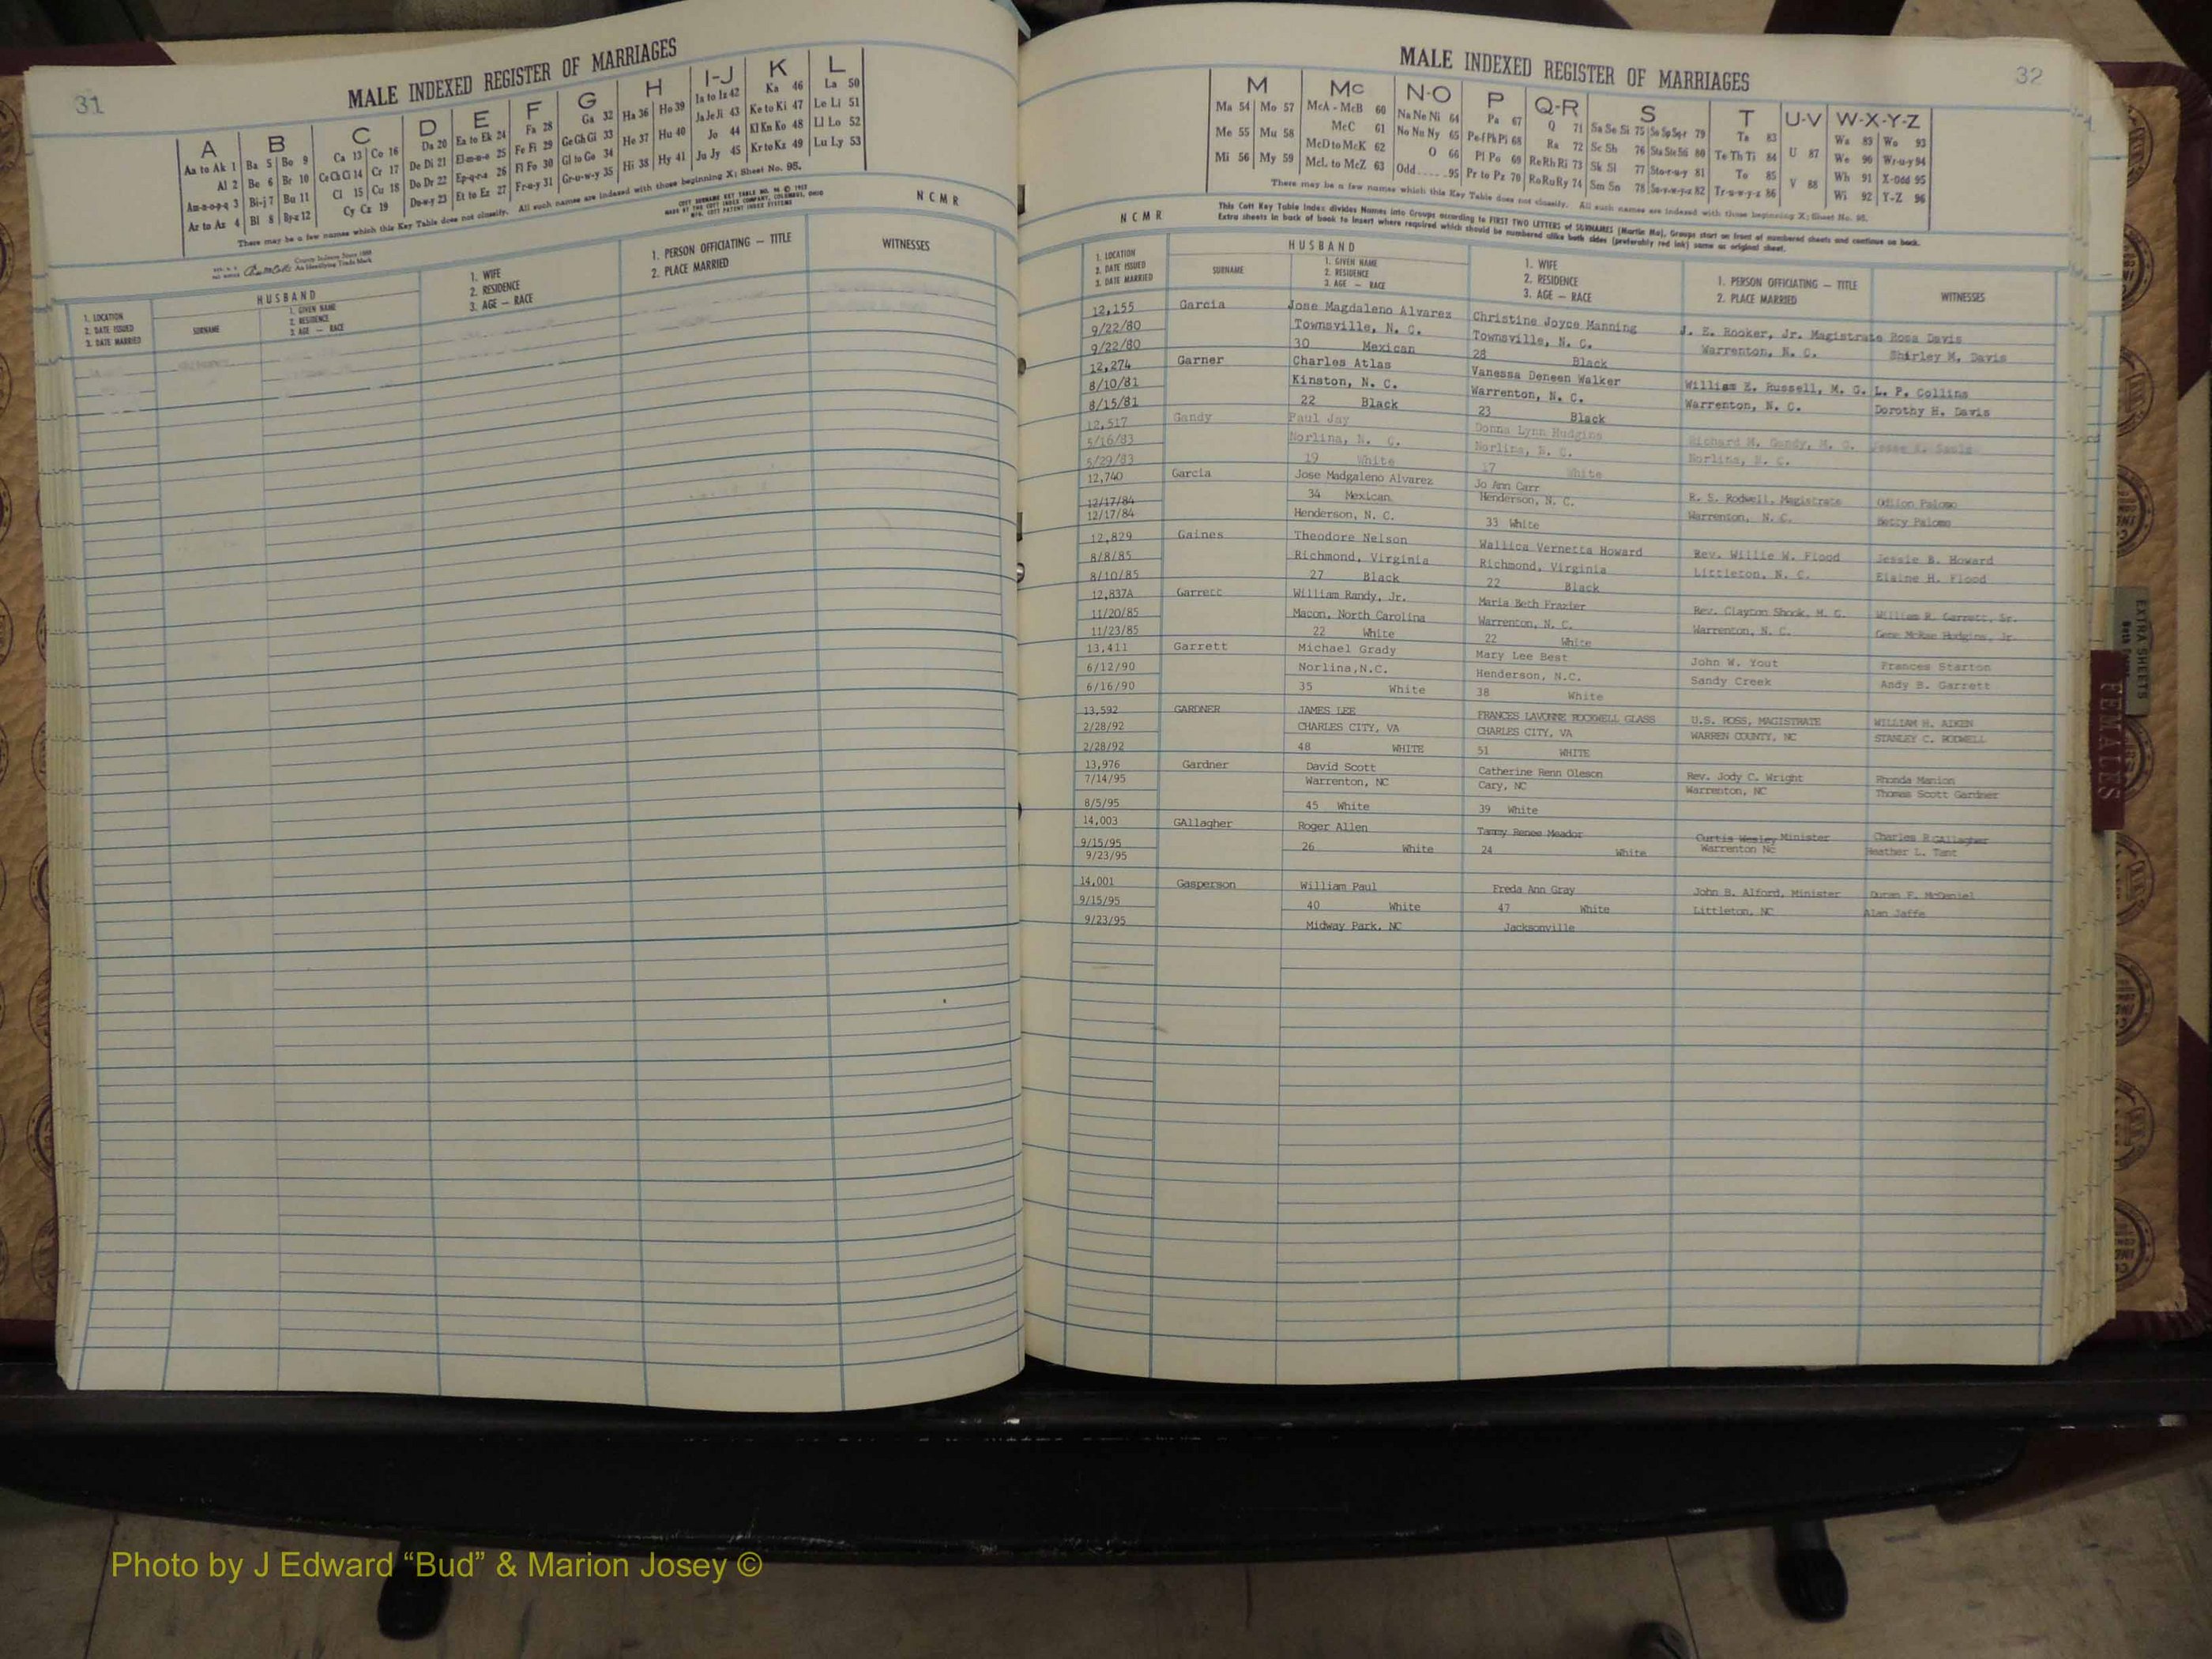 31
MALE INDEXED REGISTER OF MARRIAGES
A B C D E F G H I-J K L
Aa to Ak 1 Ba 5 Bo 9 Ca 13 Co 16 Da 20 Ea to Ek 24 Fa 28 Ga 32 Ha 36 Ho 39 Ia to Iz 42 Ka 46 La 50
Al 2 Be 6 Br 10 Ce Ch Ci 14 Cr 17 De Di 21 El-m-n-o 25 Fe Fi 29 Ge Gh Gi 33 He 37 Hu 40 Ja Je Ji 43 Ke to Ki 47 Le Li 51
Am-n-o-p-q 3 Bi-j 7 Bu 11 Cl 15 Cu 18 Do Dr 22 Ep-q-r-s 26 Fl Fo 30 Gl to Go 34 Hi 38 Hy 41 Jo 44 Kl Kn Ko 48 Ll Lo 52
Ar to Az 4 Bl 8 By-z 12 Cy Cz 19 Du-w-y 23 Et to Ez 27 Fr-u-y 31 Gr-u-w-y 35 Ju Jy 45 Kr to Kz 49 Lu Ly 53
There may be a few names which this Key Table does not classify. All such names are indexed with those beginning X; Sheet No. 95.
COTT SURNAME KEY TABLE NO. 96 © 1952
MADE BY THE COTT INDEX COMPANY, COLUMBUS, OHIO
MFG. COTT PATENT INDEX SYSTEMS
N C M R
County Indexes Since 1888
An Identifying Trade Mark
1. LOCATION
2. DATE ISSUED
3. DATE MARRIED
HUSBAND
SURNAME
1. GIVEN NAME
2. RESIDENCE
3. AGE — RACE
1. WIFE
2. RESIDENCE
3. AGE — RACE
1. PERSON OFFICIATING — TITLE
2. PLACE MARRIED
WITNESSES
MALE INDEXED REGISTER OF MARRIAGES
32
M Mc N-O P Q-R S T U-V W-X-Y-Z
Ma 54 Mo 57 McA - McB 60 Na Ne Ni 64 Pa 67 Q 71 Sa Se Si 75 So Sp Sq-r 79 Ta 83 U 87 Wa 89 Wo 93
Me 55 Mu 58 McC 61 No Nu Ny 65 Pe-f Ph Pi 68 Ra 72 Sc Sh 76 Sta Ste Sti 80 Te Th Ti 84 V 88 We 90 Wr-u-y 94
Mi 56 My 59 McD to McK 62 O 66 Pl Po 69 Re Rh Ri 73 Sk Sl 77 Sto-r-u-y 81 To 85 Wh 91 X-Odd 95
McL to McZ 63 Odd 95 Pr to Pz 70 Ro Ru Ry 74 Sm Sn 78 Su-v-w-y-z 82 Tr-u-w-y-z 86 Wi 92 Y-Z 96
There may be a few names which this Key Table does not classify. All such names are indexed with those beginning X; Sheet No. 95.
N C M R
This Cott Key Table Index divides Names into Groups according to FIRST TWO LETTERS of SURNAMES (Martin Ma), Groups start on front of numbered sheets and continue on back.
Extra sheets in back of book to insert where required which should be numbered alike both sides (preferably red ink) same as original sheet.
1. LOCATION
2. DATE ISSUED
3. DATE MARRIED
HUSBAND
SURNAME
1. GIVEN NAME
2. RESIDENCE
3. AGE — RACE
1. WIFE
2. RESIDENCE
3. AGE — RACE
1. PERSON OFFICIATING — TITLE
2. PLACE MARRIED
WITNESSES
12,155 Garcia Jose Magdaleno Alvarez Christine Joyce Manning J. E. Rooker, Jr. Magistrate Rosa Davis
9/22/80 Townsville, N. C. Townsville, N. C. Warrenton, N. C. Shirley M. Davis
9/22/80 30 Mexican 28 Black
12,274 Garner Charles Atlas Vanessa Deneen Walker William E. Russell, M. G. L. P. Collins
8/10/81 Kinston, N. C. Warrenton, N. C. Warrenton, N. C. Dorothy H. Davis
8/15/81 22 Black 23 Black
12,517 Gandy Paul Jay Donna Lynn Hudgins Richard M. Gandy, M. G.
5/16/83 Norlina, N. C. Norlina, N. C. Norlina, N. C.
5/29/83 19 White 17 White
12,740 Garcia Jose Madgaleno Alvarez Jo Ann Carr R. S. Rodwell, Magistrate Odilon Palomo
12/17/84 34 Mexican Henderson, N. C. Warrenton, N. C. Betty Palomo
12/17/84 Henderson, N. C. 33 White
12,829 Gaines Theodore Nelson Wallica Vernetta Howard Rev. Willie W. Flood Jessie B. Howard
8/8/85 Richmond, Virginia Richmond, Virginia Littleton, N. C. Elaine H. Flood
8/10/85 27 Black 22 Black
12,837A Garrett William Randy, Jr. Maria Beth Frazier Rev. Clayton Shook, M. G. William R. Garrett, Sr.
11/20/85 Macon, North Carolina Warrenton, N. C. Warrenton, N. C. Gene McRae Hudgins, Jr.
11/23/85 22 White 22 White
13,411 Garrett Michael Grady Mary Lee Best John W. Yout Frances Starton
6/12/90 Norlina,N.C. Henderson, N.C. Sandy Creek Andy B. Garrett
6/16/90 35 White 38 White
13,592 GARDNER JAMES LEE FRANCES LAVONNE ROCKWELL GLASS U.S. ROSS, MAGISTRATE WILLIAM H. AIKEN
2/28/92 CHARLES CITY, VA CHARLES CITY, VA WARREN COUNTY, NC STANLEY C. RODWELL
2/28/92 48 WHITE 51 WHITE
13,976 Gardner David Scott Catherine Renn Oleson Rev. Jody C. Wright Rhonda Manion
7/14/95 Warrenton, NC Cary, NC Warrenton, NC Thomas Scott Gardner
8/5/95 45 White 39 White
14,003 GAllagher Roger Allen Tammy Renee Meador Curtis Wesley Minister Charles R GAllagher
9/15/95 26 White 24 White Warrenton Nc Heather L. Tant
9/23/95
14,001 Gasperson William Paul Freda Ann Gray John B. Alford, Minister Duran F. McDaniel
9/15/95 40 White 47 White Littleton, NC Alan Jaffe
9/23/95 Midway Park, NC Jacksonville
EXTRA SHEETS
FEMALES
Photo by J Edward “Bud” & Marion Josey ©